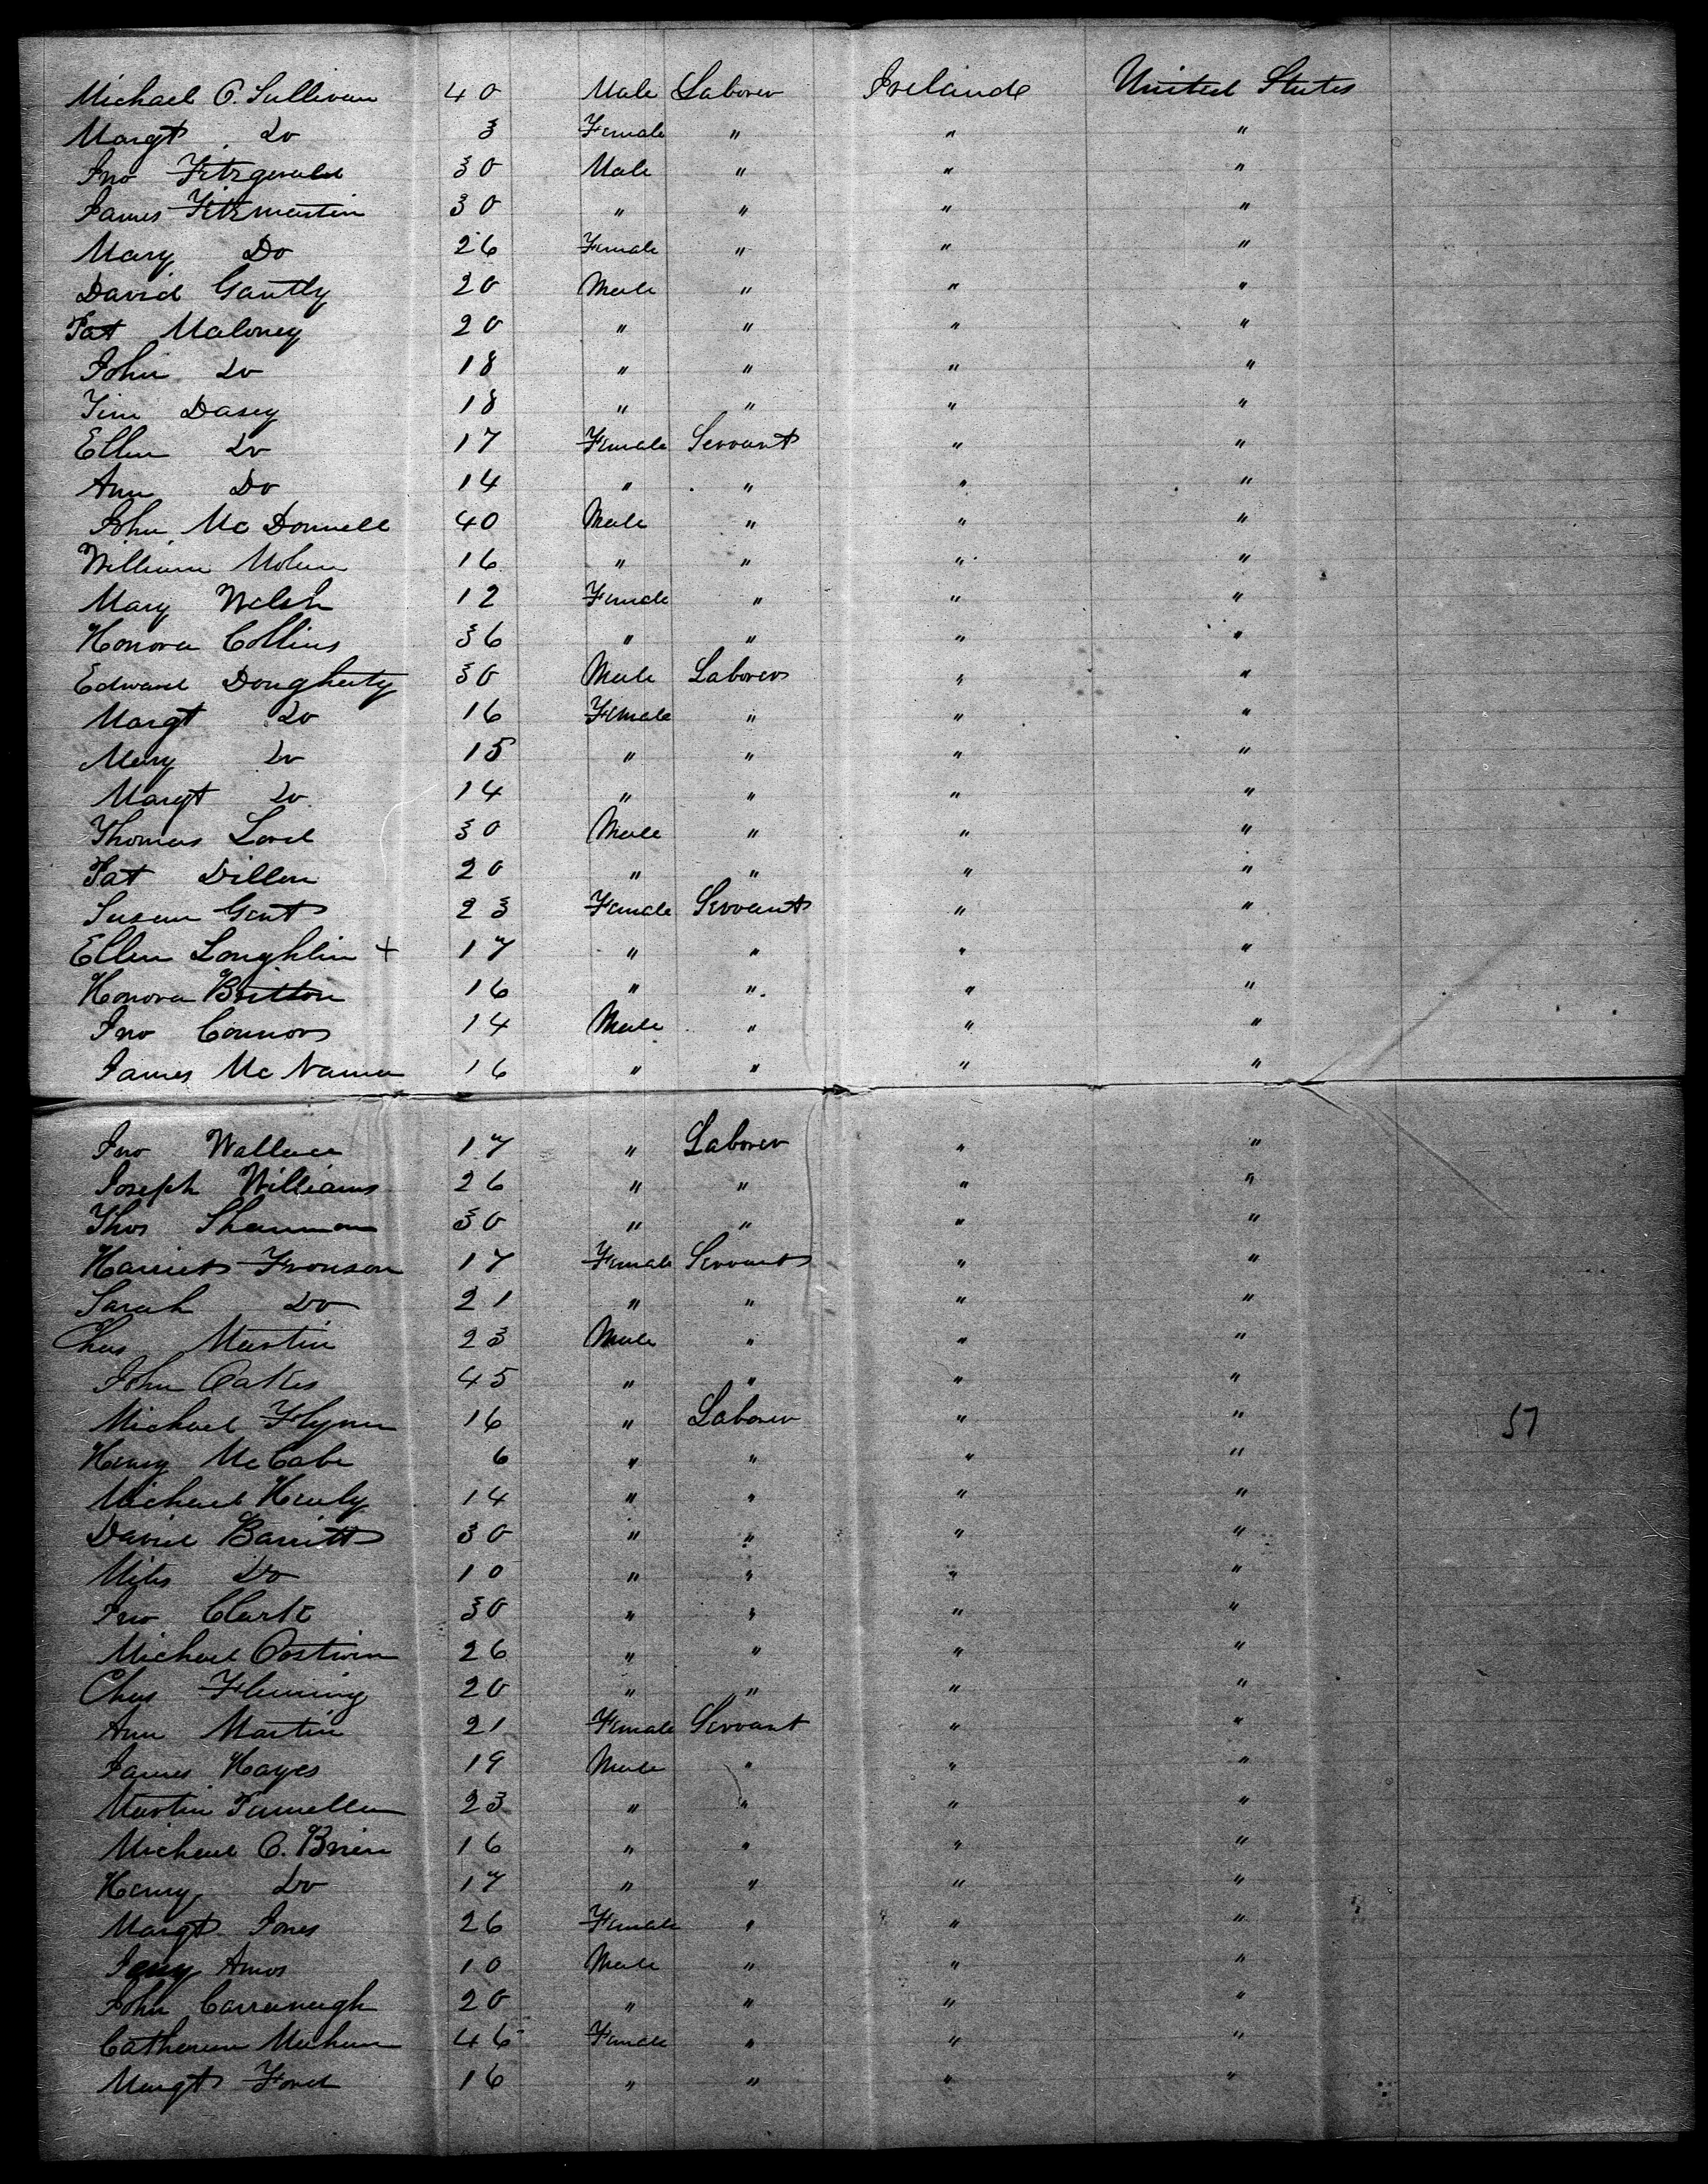 Michael O. Sullivan 40 Male Laborer Ireland United States
Margt Do 3 Female " " "
Jno Fitzgerald 30 Male " " "
James Fitzmartin 30 " " " "
Mary Do 26 Female " " "
David Gantly 20 Male " " "
Pat Maloney 20 " " " "
John Do 18 " " " "
Tim Dasey 18 " " " "
Ellen Do 17 Female Servant " "
Ann Do 14 " " " "
John McDonnell 40 Male " " "
William 16 " " " "
Mary Welsh 12 Female " " "
Honora Collins 36 " " " "
Edward Dougherty 30 Male Laborer " "
Margt Do 16 Female " " "
Mary Do 15 " " " "
Margt Do 14 " " " "
Thomas Lord 30 Male " " "
Pat Dillon 20 " " " "
Susan Gent 23 Female Servant " "
Ellen Loughlin + 17 " " " "
Honora Britton 16 " " " "
Jno Connors 14 Male " " "
James McNamer 16 " " " "
Jno Wallace 17 " Laborer " "
Joseph Williams 26 " " " "
Thos Shannon 30 " " " "
Harriet Fronson 17 Female Servant " "
Sarah Do 21 " " " "
Chas Martin 23 Male " " "
John Oakes 45 " " " "
Michael Flynn 16 " Laborer " " 57
Henry McCabe 6 " " " "
Michael Healy 14 " " " "
David Barritt 30 " " " "
Miles Do 10 " " " "
Jno Clark 30 " " " "
Michael Costivin 26 " " " "
Chas Fleming 20 " " " "
Ann Martin 21 Female Servant " "
James Hayes 19 Male " " "
Martin 23 " " " "
Michael O. Brien 16 " " " "
Henry Do 17 " " " "
Margt Jones 26 Female " " "
Amos 10 Male " " "
John Carranaugh 20 " " " "
Catherine Mehan 46 Female " " "
Margt Ford 16 " " " "